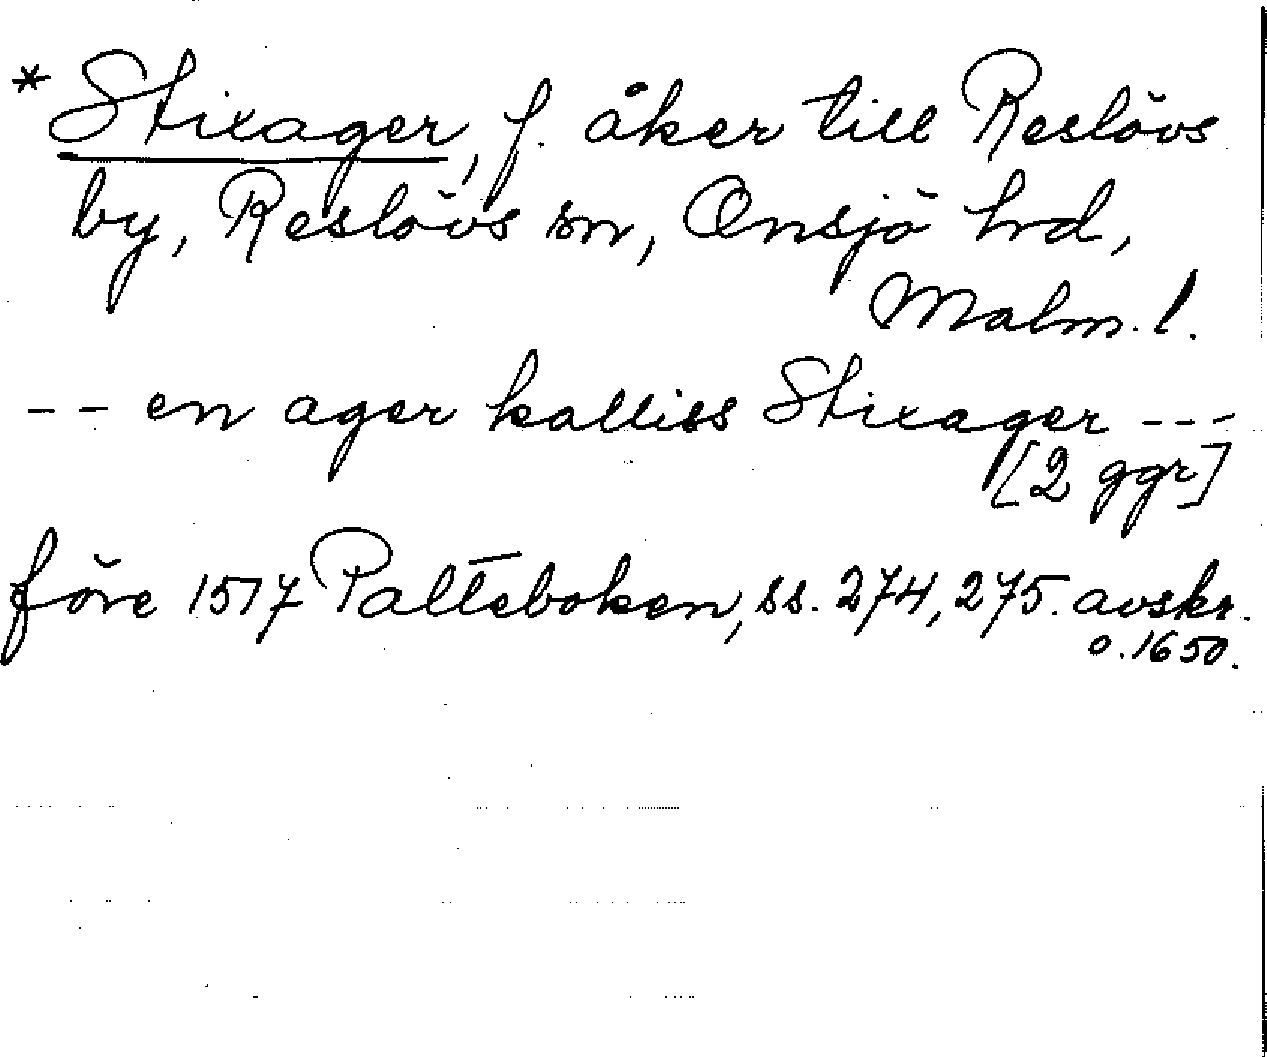 * Stixager, f. åker till Reslövs
by, Reslövs sn, Onsjö hrd,
Malm. l.
-- en ager kalliss Stixager ---
[2 ggr]
före 1517 Palteboken, ss. 274, 275. avskr.
o. 1650.